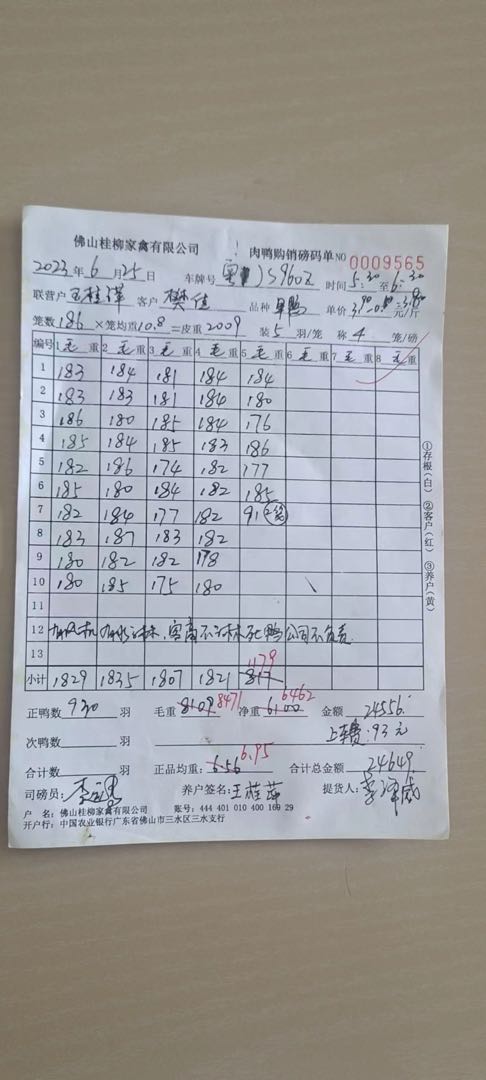 佛山桂柳家禽有限公司 肉鸭购销磅码单 NO 0009565
2023年6月25日 车牌号 S960Z 时间 5:30至6:30
联营户 王桂萍 客户 樊佳 品种 旱鸭 单价 元/斤
笼数186×笼均重10.8=皮重2009 装5羽/笼 称4笼/磅
编号 1毛重 2毛重 3毛重 4毛重 5毛重 6毛重 7毛重 8毛重
1 183 184 181 184 184
2 183 183 181 184 180
3 186 180 185 184 176
4 185 184 185 183 186
5 182 186 174 182 177
6 185 180 184 182 185
7 182 184 177 182 91(2笼)
8 183 187 183 182
9 180 182 182 178
10 180 185 175 180
11
12 死鸭公司不负责.
13
1179
小计 1829 1835 1807 1821
正鸭数930羽 毛重8109 8471 净重6100 6462 金额24556
上车费:93元
次鸭数 羽
合计数 羽 正品均重:6.56 6.95 合计总金额24649
司磅员: 养户签名:王桂萍 提货人:
户 名:佛山桂柳家禽有限公司 账号:444 401 010 400 169 29
开户行:中国农业银行广东省佛山市三水区三水支行
①存根(白) ②客户(红) ③养户(黄)